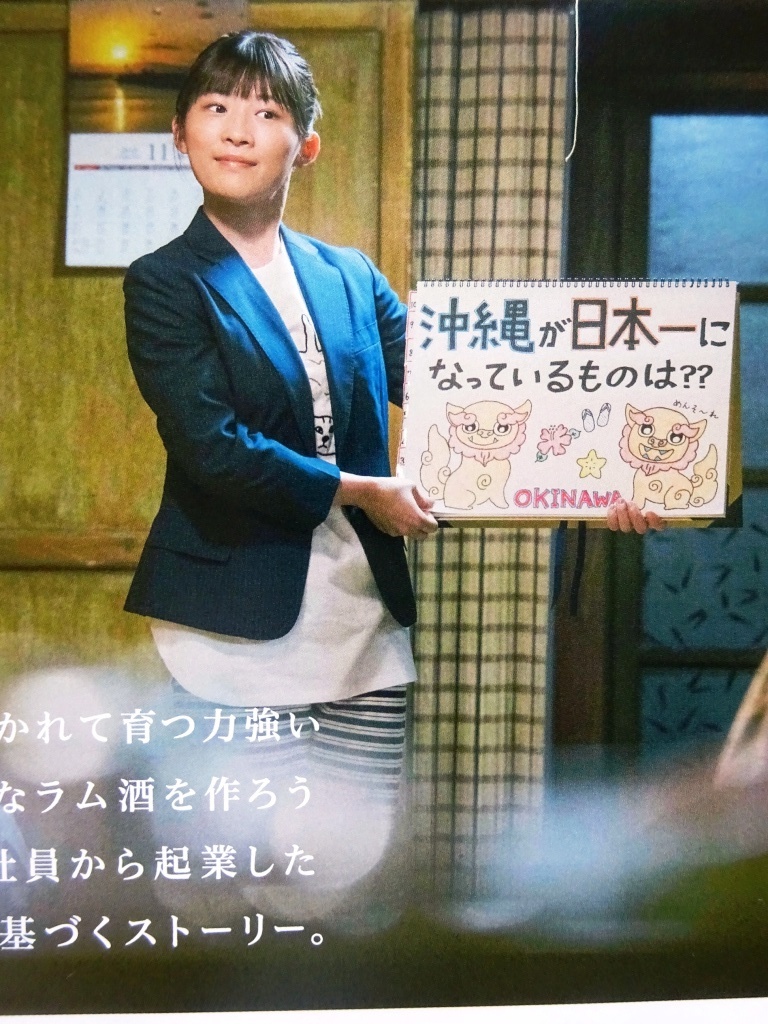 11
沖縄が日本一に
なっているものは??
めんそ〜れ
OKINAWA
かれて育つ力強い
なラム酒を作ろう
社員から起業した
基づくストーリー。